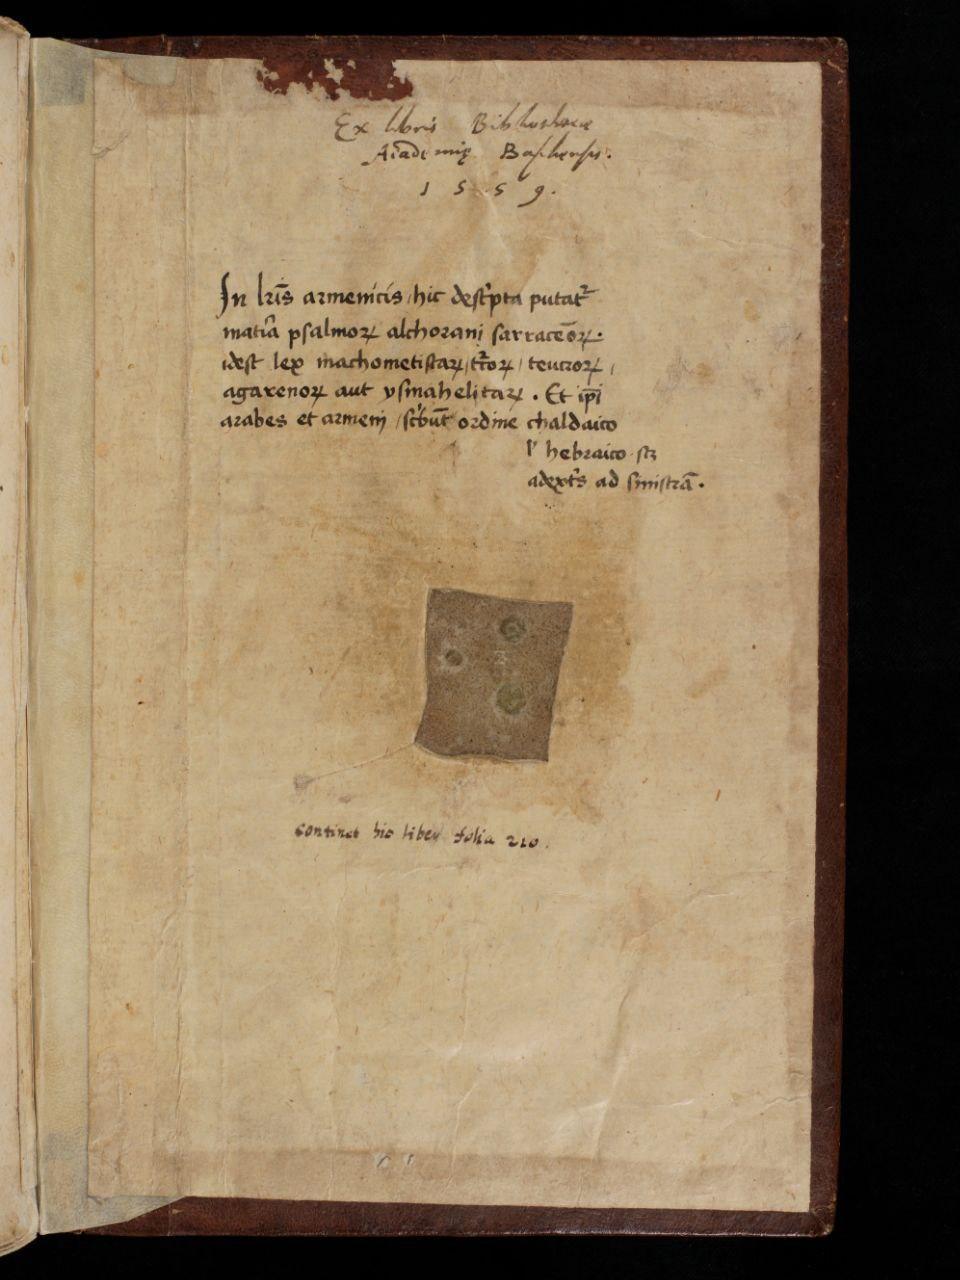 Ex libris Bibliothecæ
Academię Basiliensis.
1 5 5 9.
In lr̃is armenicis / hic descͥpta putatᷣ
matͥa psalmoꝝ alchorani sarraceñoꝝ.
idest lex machometistaꝝ / tᷣcoꝝ / teucroꝝ /
agarenoꝝ aut ysmahelitaꝝ . Et ip̃i
arabes et armenj / scͥbūt ordine chaldaico
lͥ hebraico . scꝫ
adextͥs ad sinistrā .
Continet hic liber folia 210.